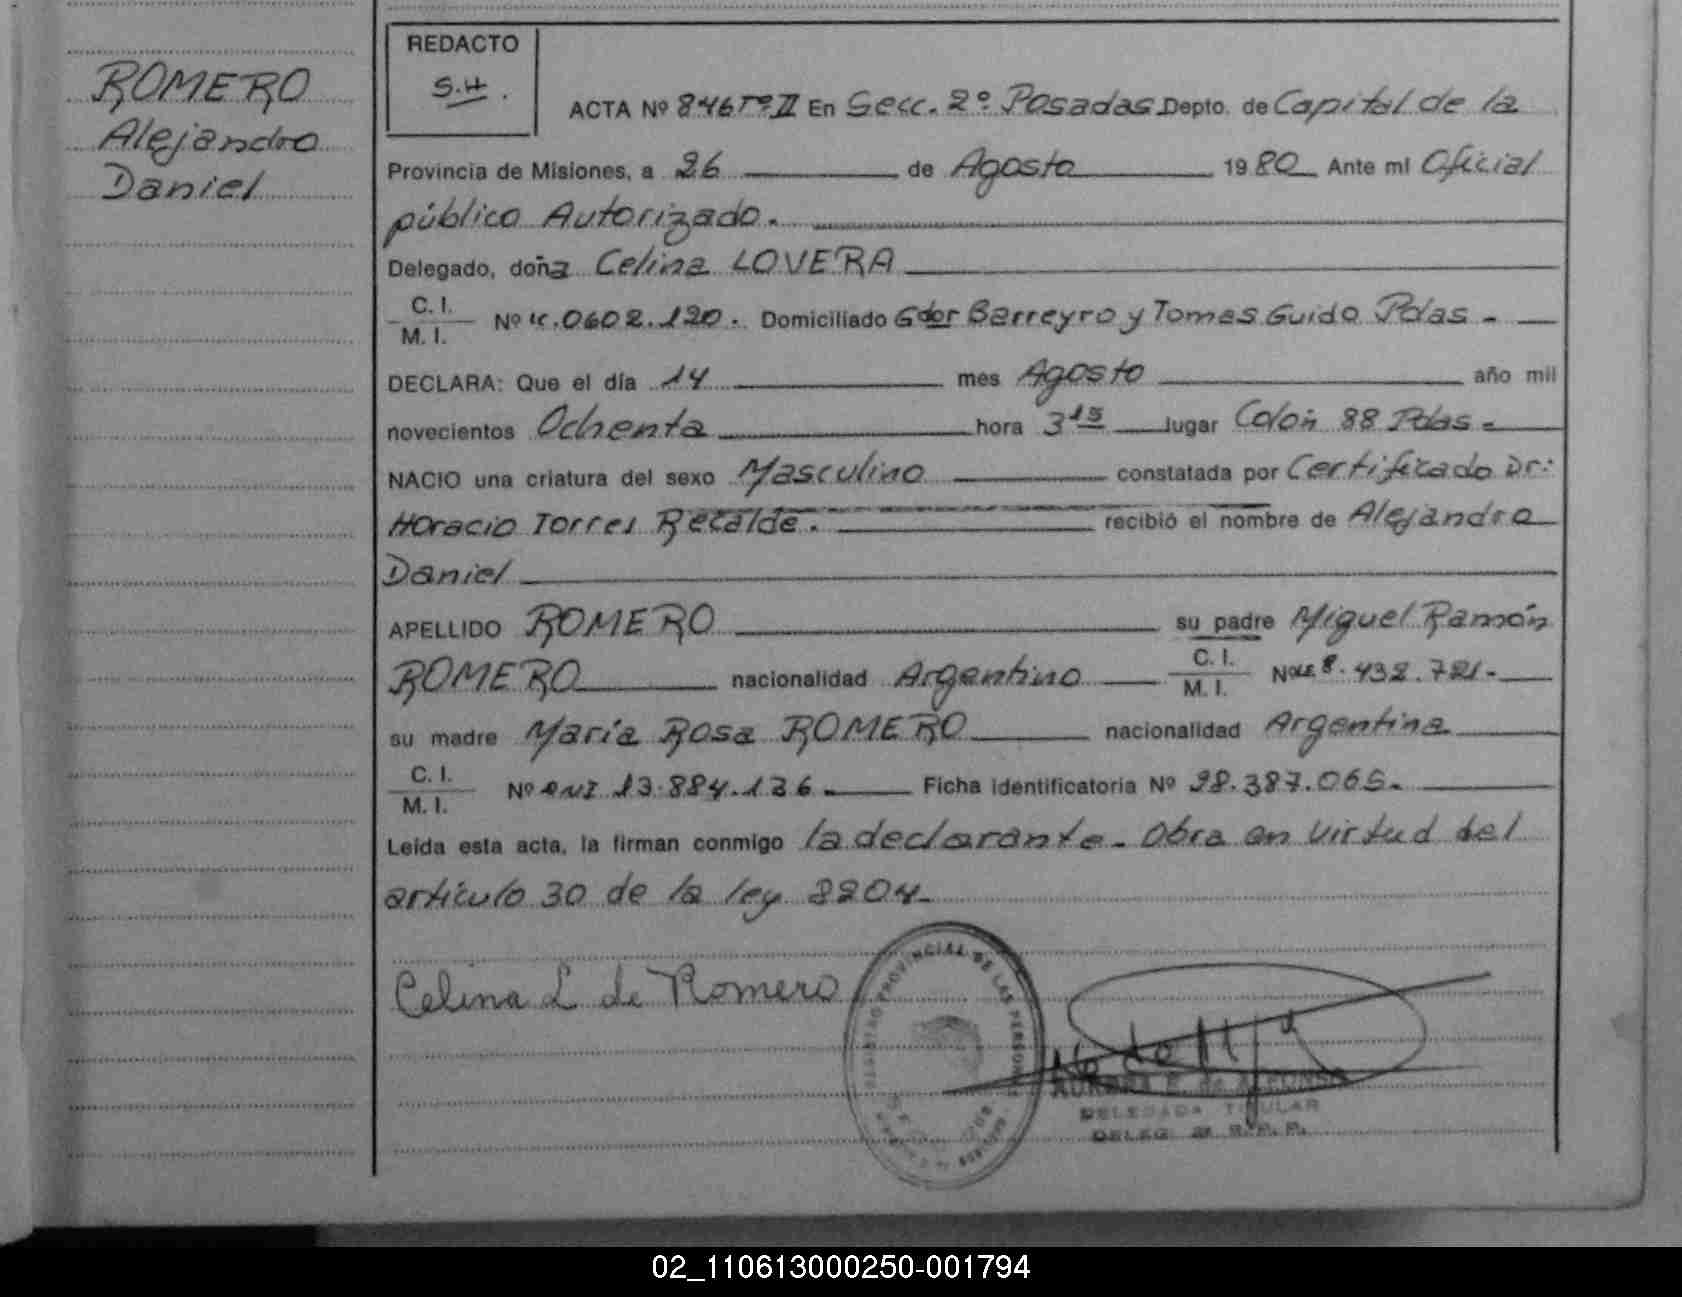 ROMERO
Alejandro
Daniel
REDACTO
S.H.
ACTA Nº 846 Tº II En Secc. 2º Posadas Depto. de Capital de la
Provincia de Misiones, a 26 de Agosto 1980 Ante mi Oficial
público Autorizado.
Delegado, doña Celina LOVERA
C. I.
M. I. Nº 0602.120. Domiciliado Gdor Barreyro y Tomas Guido Pdas -
DECLARA: Que el día 14 mes Agosto año mil
novecientos Ochenta hora 3 15 lugar Colón 88 Pdas -
NACIO una criatura del sexo Masculino constatada por Certificado Dr:
Horacio Torres Recalde. recibió el nombre de Alejandro
Daniel
APELLIDO ROMERO su padre Miguel Ramón
ROMERO nacionalidad Argentino C. I. M. I. Nº 8.432.721.-
su madre María Rosa ROMERO nacionalidad Argentina
C. I.
M. I. Nº DNI 13.884.136 Ficha Identificatoria Nº 28.387.065.
Leída esta acta, la firman conmigo la declarante. Obra en virtud del
artículo 30 de la ley 2204.
Celina L de Romero
REGISTRO PROVINCIAL DE LAS PERSONAS
E. de ALFONSO
DELEGADA TITULAR
DELEG. 2ª R.P.P.
02_110613000250-001794